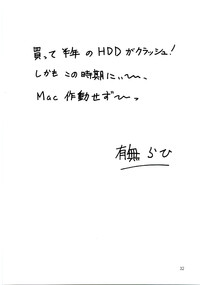 買って半年のHDDがクラッシュ!
しかもこの時期にぃ〜、
Mac作動せず〜っ
有無らひ
32